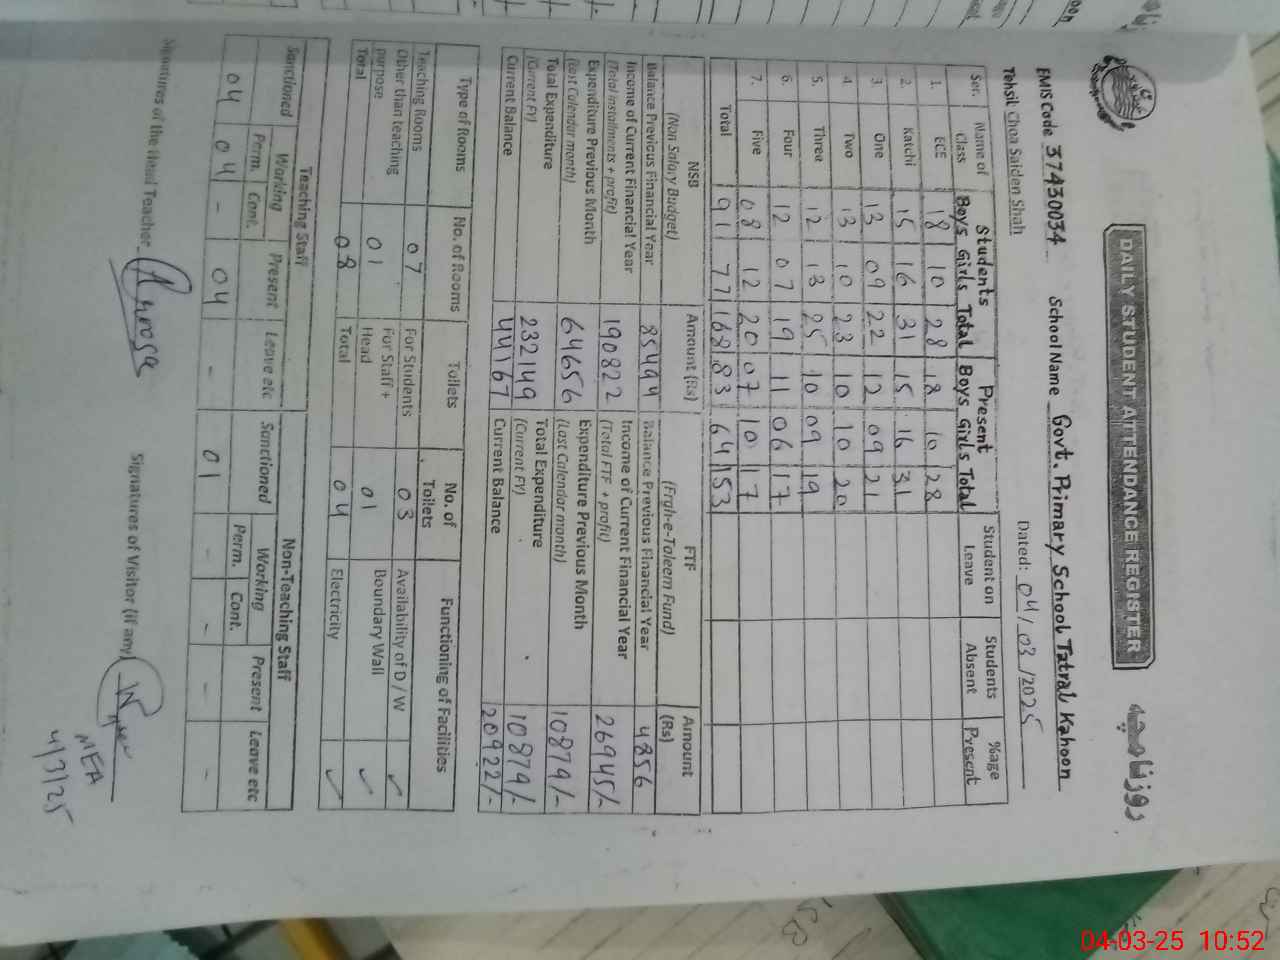 DAILY STUDENT ATTENDANCE REGISTER روزنامچہ
EMIS Code 37430034 School Name Govt. Primary School Tatral Kahoon
Tehsil Choa Saiden Shah Dated: 04/03/2025
Ser. Name of Class Students Boys Girls Total Present Boys Girls Total Student on Leave Students Absent %age Present
1. ECE 18 10 28 18 10 28
2. Katchi 15 16 31 15 16 31
3. One 13 09 22 12 09 21
4. Two 13 10 23 10 10 20
5. Three 12 13 25 10 09 19
6. Four 12 07 19 11 06 17
7. Five 08 12 20 07 10 17
Total 91 77 168 83 64 153
NSB (Non Salary Budget) Amount (Rs) FTF (Frgh-e-Taleem Fund) Amount (Rs)
Balance Previous Financial Year 85494 Balance Previous Financial Year 4856
Income of Current Financial Year (Total installments + profit) 190822 Income of Current Financial Year (Total FTF + profit) 26945/-
Expenditure Previous Month (last Calendar month) 64656 Expenditure Previous Month (Last Calendar month) 10879/-
Total Expenditure (Current FY) 232149 Total Expenditure (Current FY) 10879/-
Current Balance 44167 Current Balance 20922/-
Type of Rooms No. of Rooms Toilets No. of Toilets Functioning of Facilities
Teaching Rooms 07 For Students 03 Availability of D / W ✓
Other than teaching purpose 01 For Staff + Head 01 Boundary Wall ✓
Total 08 Total 04 Electricity ✓
Teaching Staff Non-Teaching Staff
Sanctioned Working Perm. Cont. Present Leave etc Sanctioned Working Perm. Cont. Present Leave etc
04 04 - 04 - 01 - - - -
Signatures of the Head Teacher Signatures of Visitor (if any)
MEA
4/3/25
04-03-25 10:52